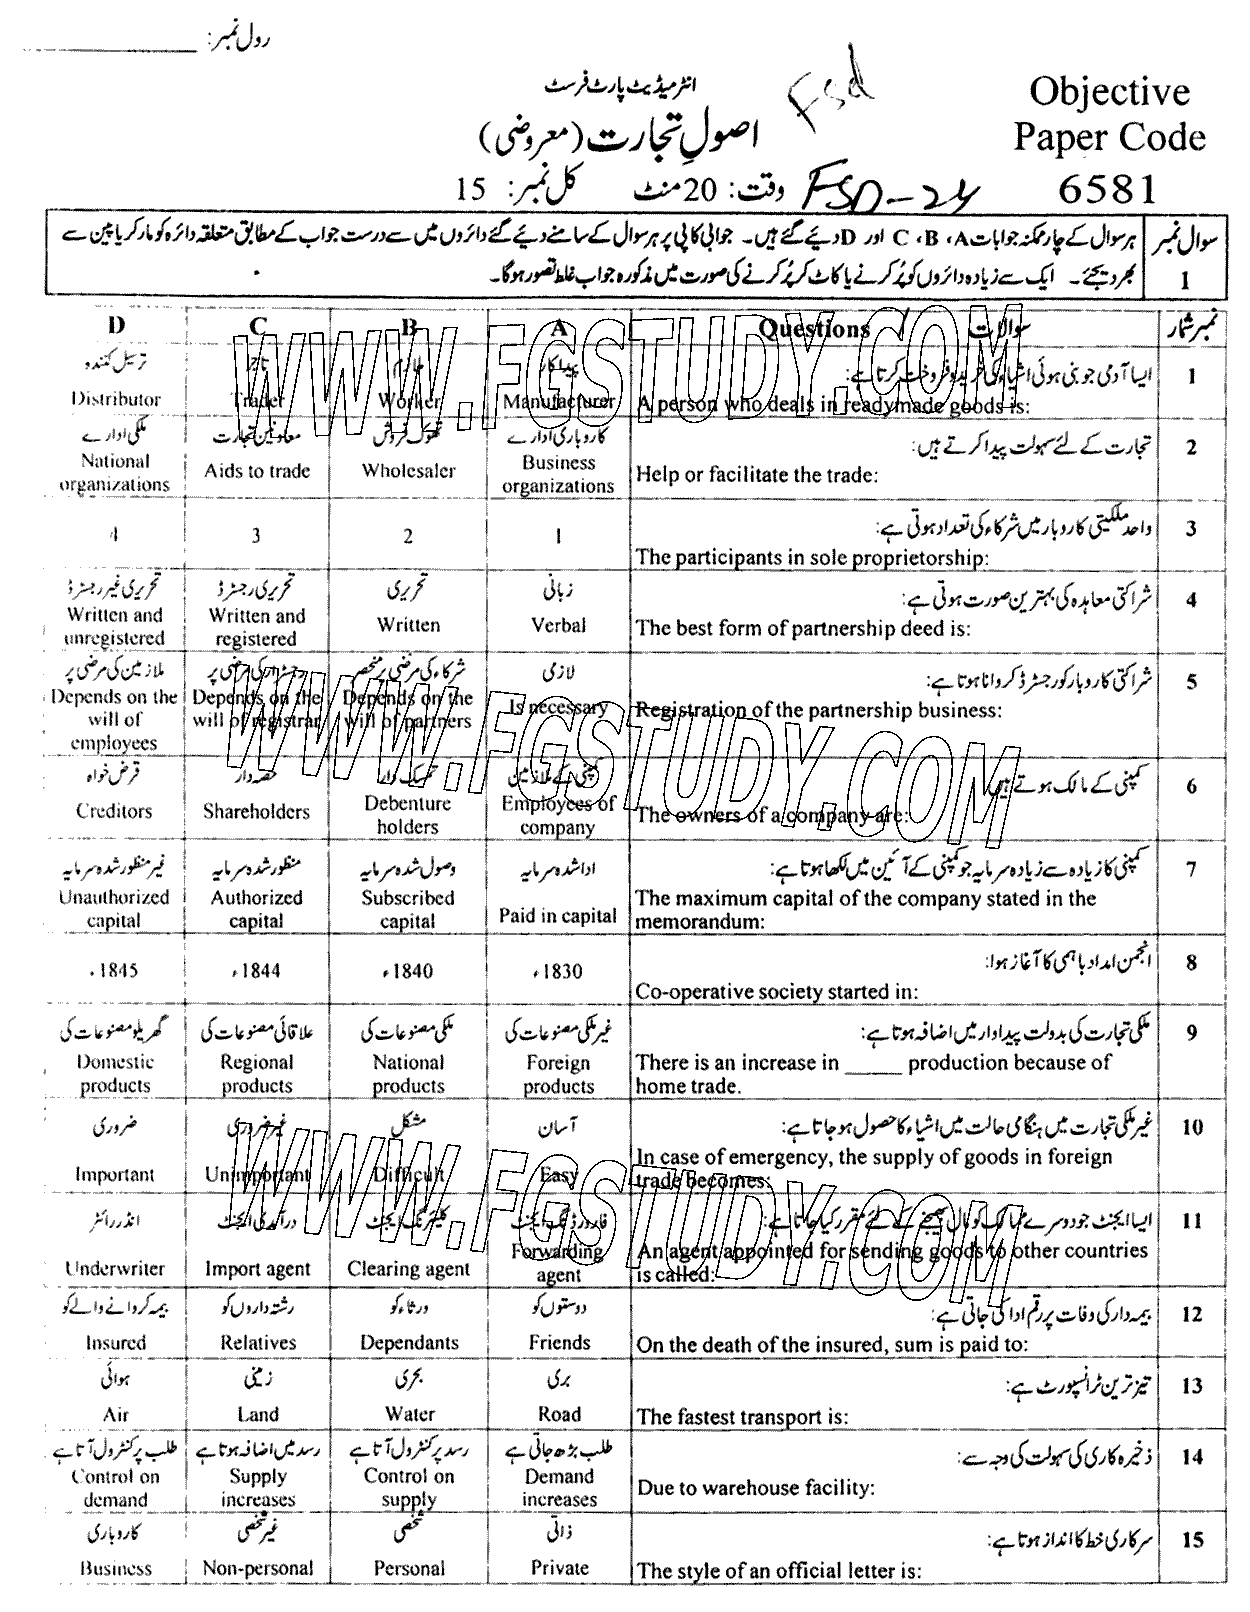 رول نمبر: ____________
انٹرمیڈیٹ پارٹ فرسٹ
Fsd
Objective
Paper Code
6581
اصولِ تجارت (معروضی)
وقت: 20 منٹ کل نمبر: 15
FSD-24
سوال نمبر 1
ہر سوال کے چار ممکنہ جوابات A، B، C اور D دیئے گئے ہیں۔ جوابی کاپی پر ہر سوال کے سامنے دیئے گئے دائروں میں سے درست جواب کے مطابق متعلقہ دائرہ کو مارکر یا پین سے
بھر دیجئے۔ ایک سے زیادہ دائروں کو پُر کرنے یا کاٹ کر پُر کرنے کی صورت میں مذکورہ جواب غلط تصور ہوگا۔
نمبر شمار سوالات / Questions A B C D
1 ایسا آدمی جو بنی ہوئی اشیاء کی خرید و فروخت کرتا ہے:
A person who deals in readymade goods is:
پیداکار ملازم تاجر ترسیل کنندہ
Manufacturer Worker Trader Distributor
2 تجارت کے لئے سہولت پیدا کرتے ہیں:
Help or facilitate the trade:
کاروباری ادارے تھوک فروش معاونینِ تجارت ملکی ادارے
Business organizations Wholesaler Aids to trade National organizations
3 واحد ملکیتی کاروبار میں شرکاء کی تعداد ہوتی ہے:
The participants in sole proprietorship:
1 2 3 4
4 شراکتی معاہدہ کی بہترین صورت ہوتی ہے:
The best form of partnership deed is:
زبانی تحریری تحریری رجسٹرڈ تحریری غیر رجسٹرڈ
Verbal Written Written and registered Written and unregistered
5 شراکتی کاروبار کو رجسٹرڈ کروانا ہوتا ہے:
Registration of the partnership business:
لازمی شرکاء کی مرضی پر منحصر رجسٹرار کی مرضی پر ملازمین کی مرضی پر
Is necessary Depends on the will of partners Depends on the will of registrar Depends on the will of employees
6 کمپنی کے مالک ہوتے ہیں:
The owners of a company are:
کمپنی کے ملازمین تمسک دار حصہ دار قرض خواہ
Employees of company Debenture holders Shareholders Creditors
7 کمپنی کا زیادہ سے زیادہ سرمایہ جو کمپنی کے آئین میں لکھا ہوتا ہے:
The maximum capital of the company stated in the
memorandum:
ادا شدہ سرمایہ وصول شدہ سرمایہ منظور شدہ سرمایہ غیر منظور شدہ سرمایہ
Paid in capital Subscribed capital Authorized capital Unauthorized capital
8 انجمن امداد باہمی کا آغاز ہوا:
Co-operative society started in:
1830ء 1840ء 1844ء 1845ء
9 ملکی تجارت کی بدولت پیداوار میں اضافہ ہوتا ہے:
There is an increase in _____ production because of
home trade.
غیر ملکی مصنوعات کی ملکی مصنوعات کی علاقائی مصنوعات کی گھریلو مصنوعات کی
Foreign products National products Regional products Domestic products
10 غیر ملکی تجارت میں ہنگامی حالت میں اشیاء کا حصول ہو جاتا ہے:
In case of emergency, the supply of goods in foreign
trade becomes:
آسان مشکل غیر ضروری ضروری
Easy Difficult Unimportant Important
11 ایسا ایجنٹ جو دوسرے ممالک کو مال بھیجنے کے لئے مقرر کیا جاتا ہے:
An agent appointed for sending goods to other countries
is called:
فارورڈنگ ایجنٹ کلیئرنگ ایجنٹ درآمدی ایجنٹ انڈر رائٹر
Forwarding agent Clearing agent Import agent Underwriter
12 بیمہ دار کی وفات پر رقم ادا کی جاتی ہے:
On the death of the insured, sum is paid to:
دوستوں کو ورثاء کو رشتہ داروں کو بیمہ کروانے والے کو
Friends Dependants Relatives Insured
13 تیز ترین ٹرانسپورٹ ہے:
The fastest transport is:
بری بحری زمینی ہوائی
Road Water Land Air
14 ذخیرہ کاری کی سہولت کی وجہ سے:
Due to warehouse facility:
طلب بڑھ جاتی ہے رسد پر کنٹرول آتا ہے رسد میں اضافہ ہوتا ہے طلب پر کنٹرول آتا ہے
Demand increases Control on supply Supply increases Control on demand
15 سرکاری خط کا انداز ہوتا ہے:
The style of an official letter is:
ذاتی شخصی غیر شخصی کاروباری
Private Personal Non-personal Business
WWW.FGSTUDY.COM
WWW.FGSTUDY.COM
WWW.FGSTUDY.COM